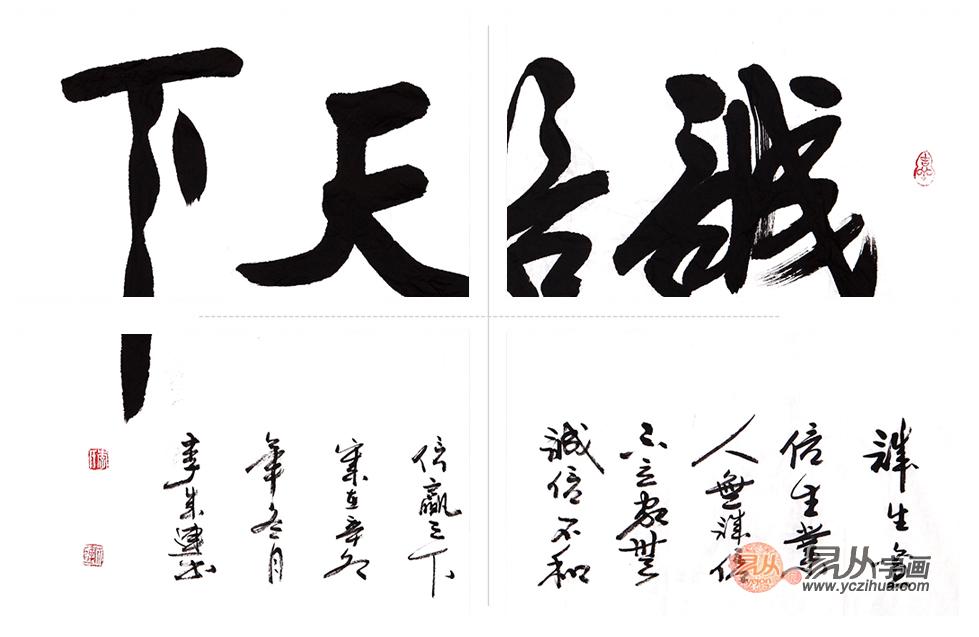 誠信天下
誠生
信生業
人無誠信
不立家無
誠信不和
信贏天下
歲在辛卯
年冬月
李成連書
易从字画
www.yczihua.com
yejon